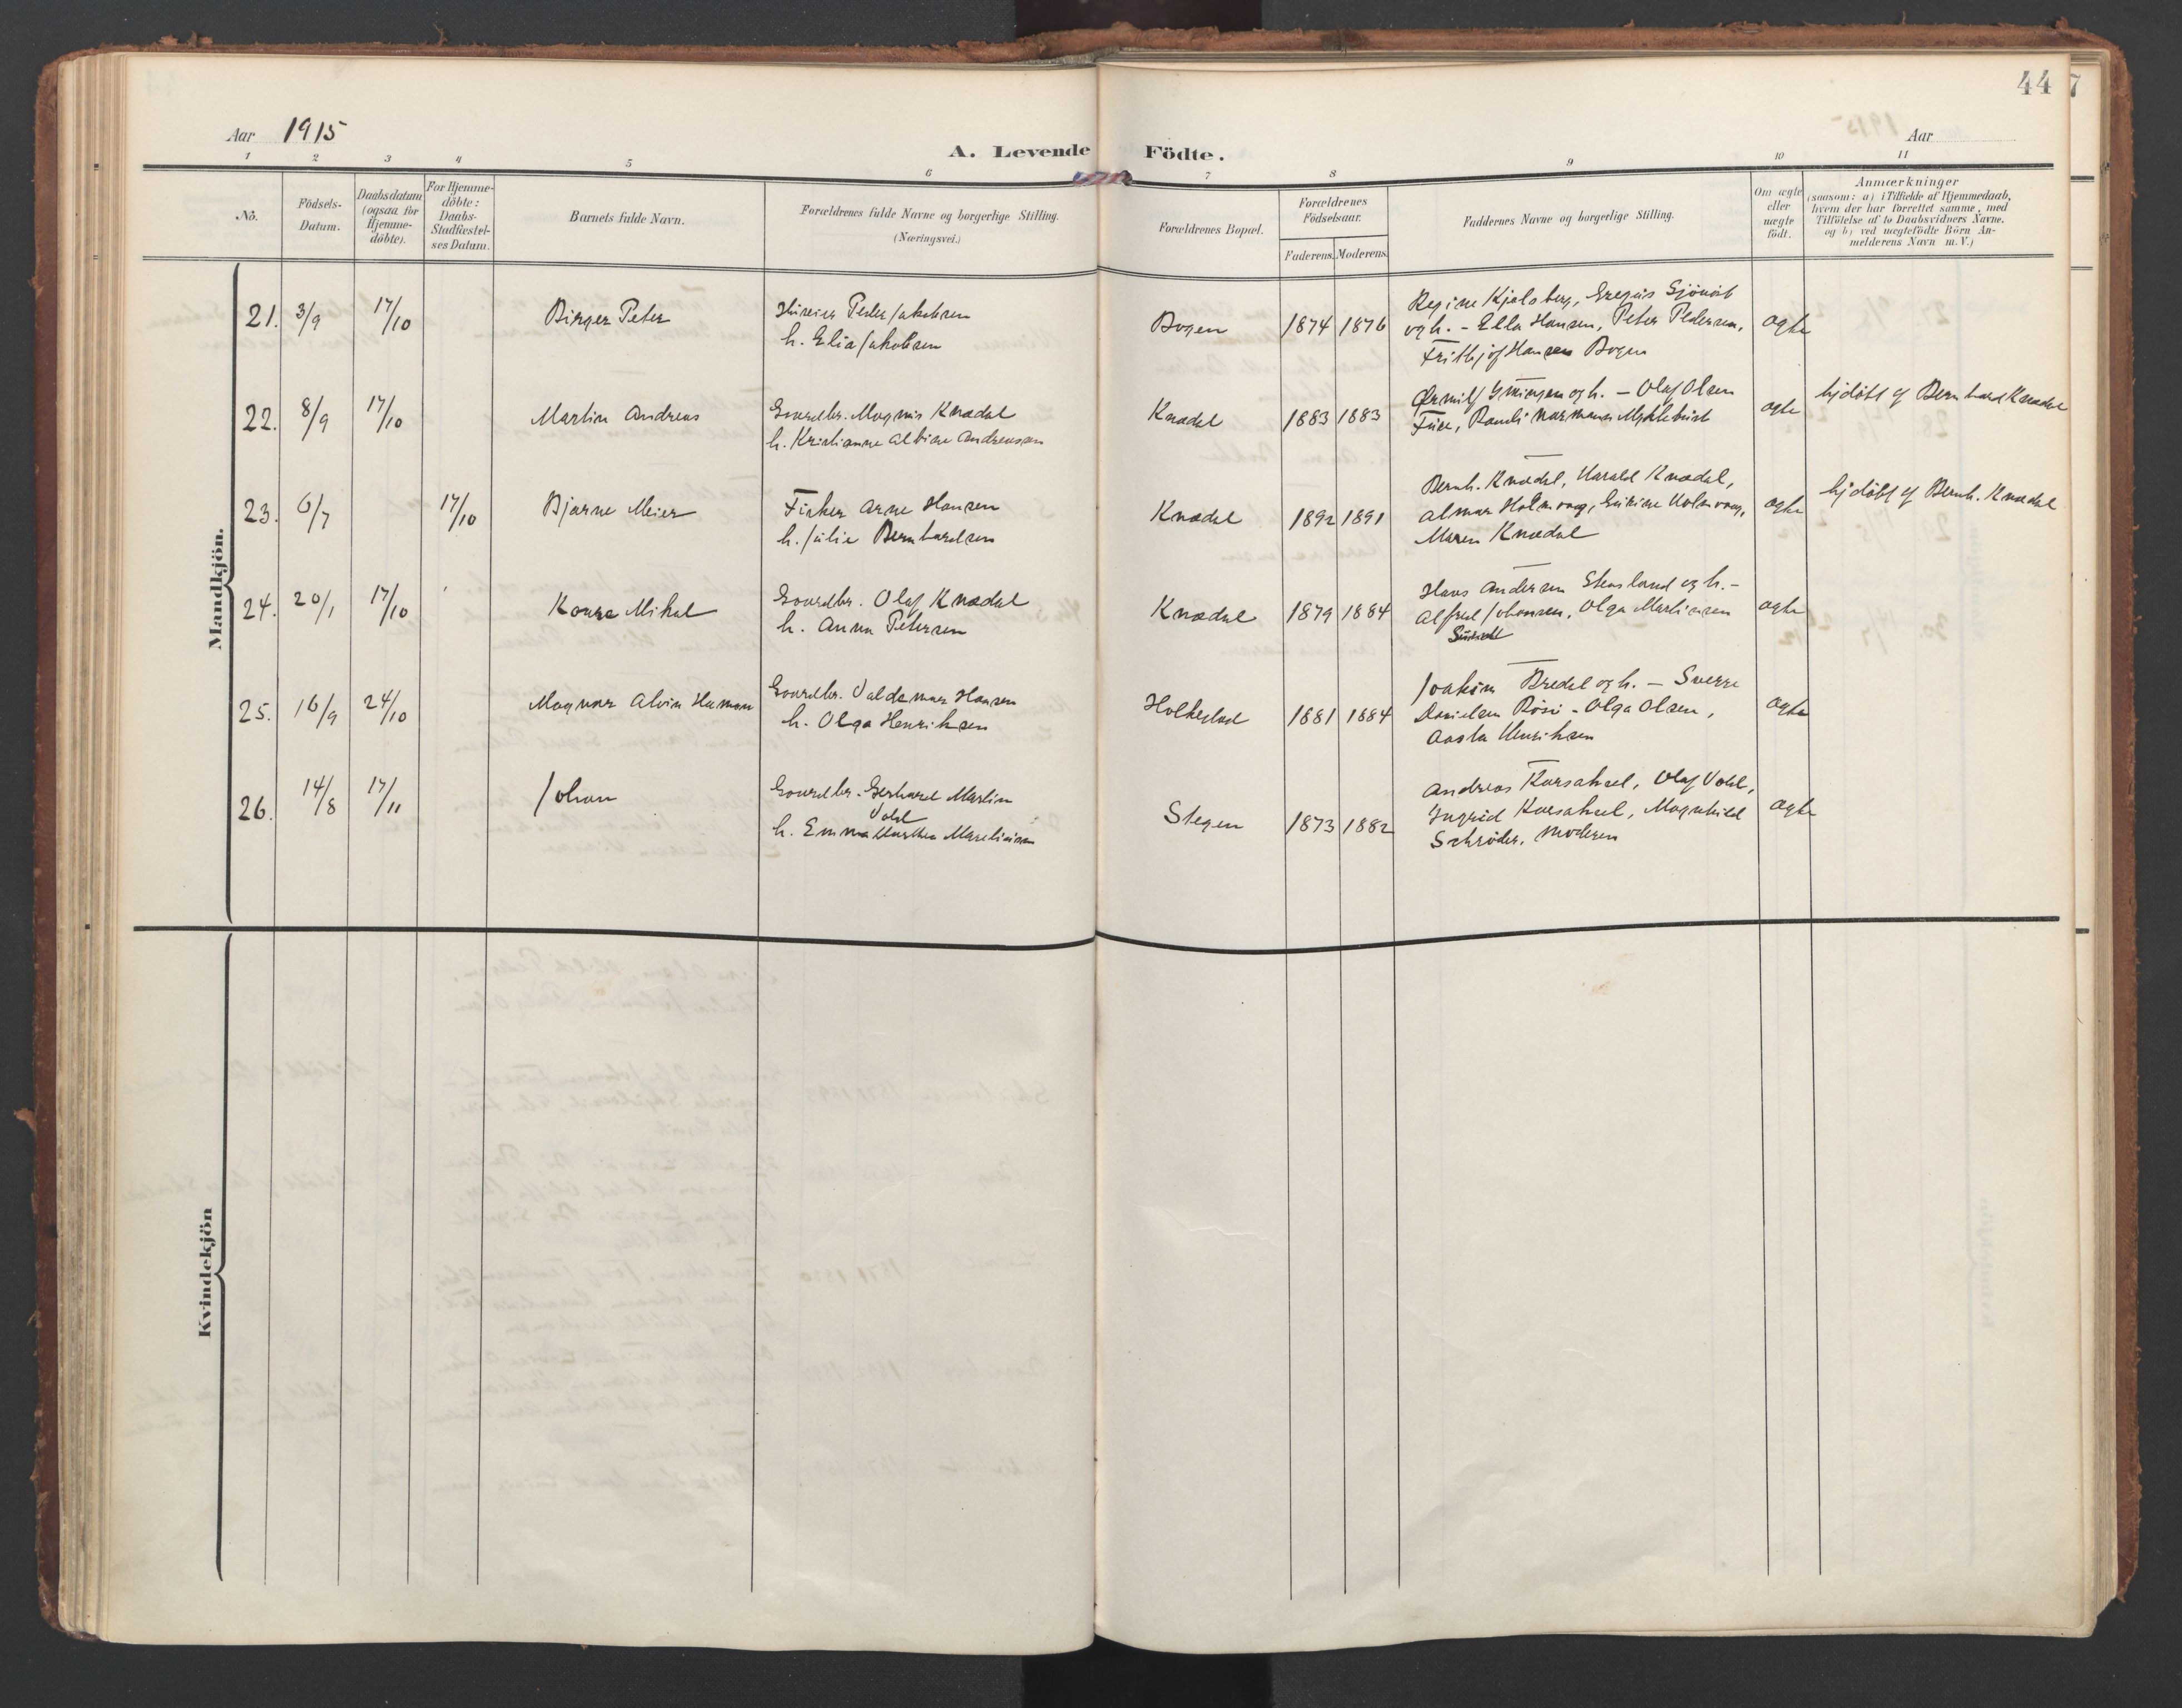 44
Aar 1915
A. Levende Födte.
Aar
1 2 3 4 5 6 7 8 9 10 11
No.
Födsels-
Datum.
Daabsdatum
(ogsaa for
Hjemme-
döbte).
For Hjemme-
döbte:
Daabs-
Stadfæstel-
ses Datum.
Barnets fulde Navn.
Forældrenes fulde Navne og borgerlige Stilling.
(Næringsvei.)
Forældrenes Bopæl.
Forældrenes
Födselsaar.
Faderens. Moderens.
Faddernes Navne og borgerlige Stilling.
Om ægte
eller
uægte
födt.
Anmærkninger
(saasom: a) i Tilfælde af Hjemmedaab,
hvem der har forrettet samme, med
Tilföielse af to Daabsvidners Navne.
og b) ved uægtefödte Börn An-
melderens Navn m. V.)
Mandkjön.
21. 3/9 17/10 Birger Peter
Peder Jakobsen
h. Elia Jakobsen
Bogen 1874 1876
Regine Kjelsberg,
og h. - Ella Hansen, Peter Pedersen,
Frithjof Hansen Bogen
ægte
22. 8/9 17/10 Martin Andreas
Gaardbr. Magnus Knædal
h. Kristianne Albine Andreassen
Knædal 1883 1883
og h. - Olaf Olsen
ægte
hjdöbt af Bernhard Knædal
23. 6/7 17/10 Bjarne Meier
Fisker Arne Hansen
h. Julie Bernhardsen
Knædal 1892 1891
Bernh. Knædal, Harald Knædal,
Almar Holmvaag, Holmvaag,
Maren Knædal
ægte
hjdöbt af Bernh. Knædal
24. 20/1 17/10 Konra Mikal
Gaardbr. Olaf Knædal
h. Anna Petersen
Knædal 1879 1884
Hans Andersen Stensland og h. -
Alfred Johansen, Olga Martinsen
ægte
25. 16/9 24/10 Magnar Alvin Herman
Gaardbr. Valdemar Hansen
h. Olga Henriksen
Holkestad 1881 1884
Joakim Bredal og h. - Sverre
Danielsen Røsö - Olga Olsen,
Aasta Henriksen
ægte
26. 14/8 17/11 Johan
Gaardbr. Gerhard Martin
Vahl
h. Emma Martha
Stegen 1873 1882
Andreas Korsaksel, Olaf Vahl,
Ingrid Korsaksel, Magnhild
Schrøder, Moderen
ægte
Kvindekjön